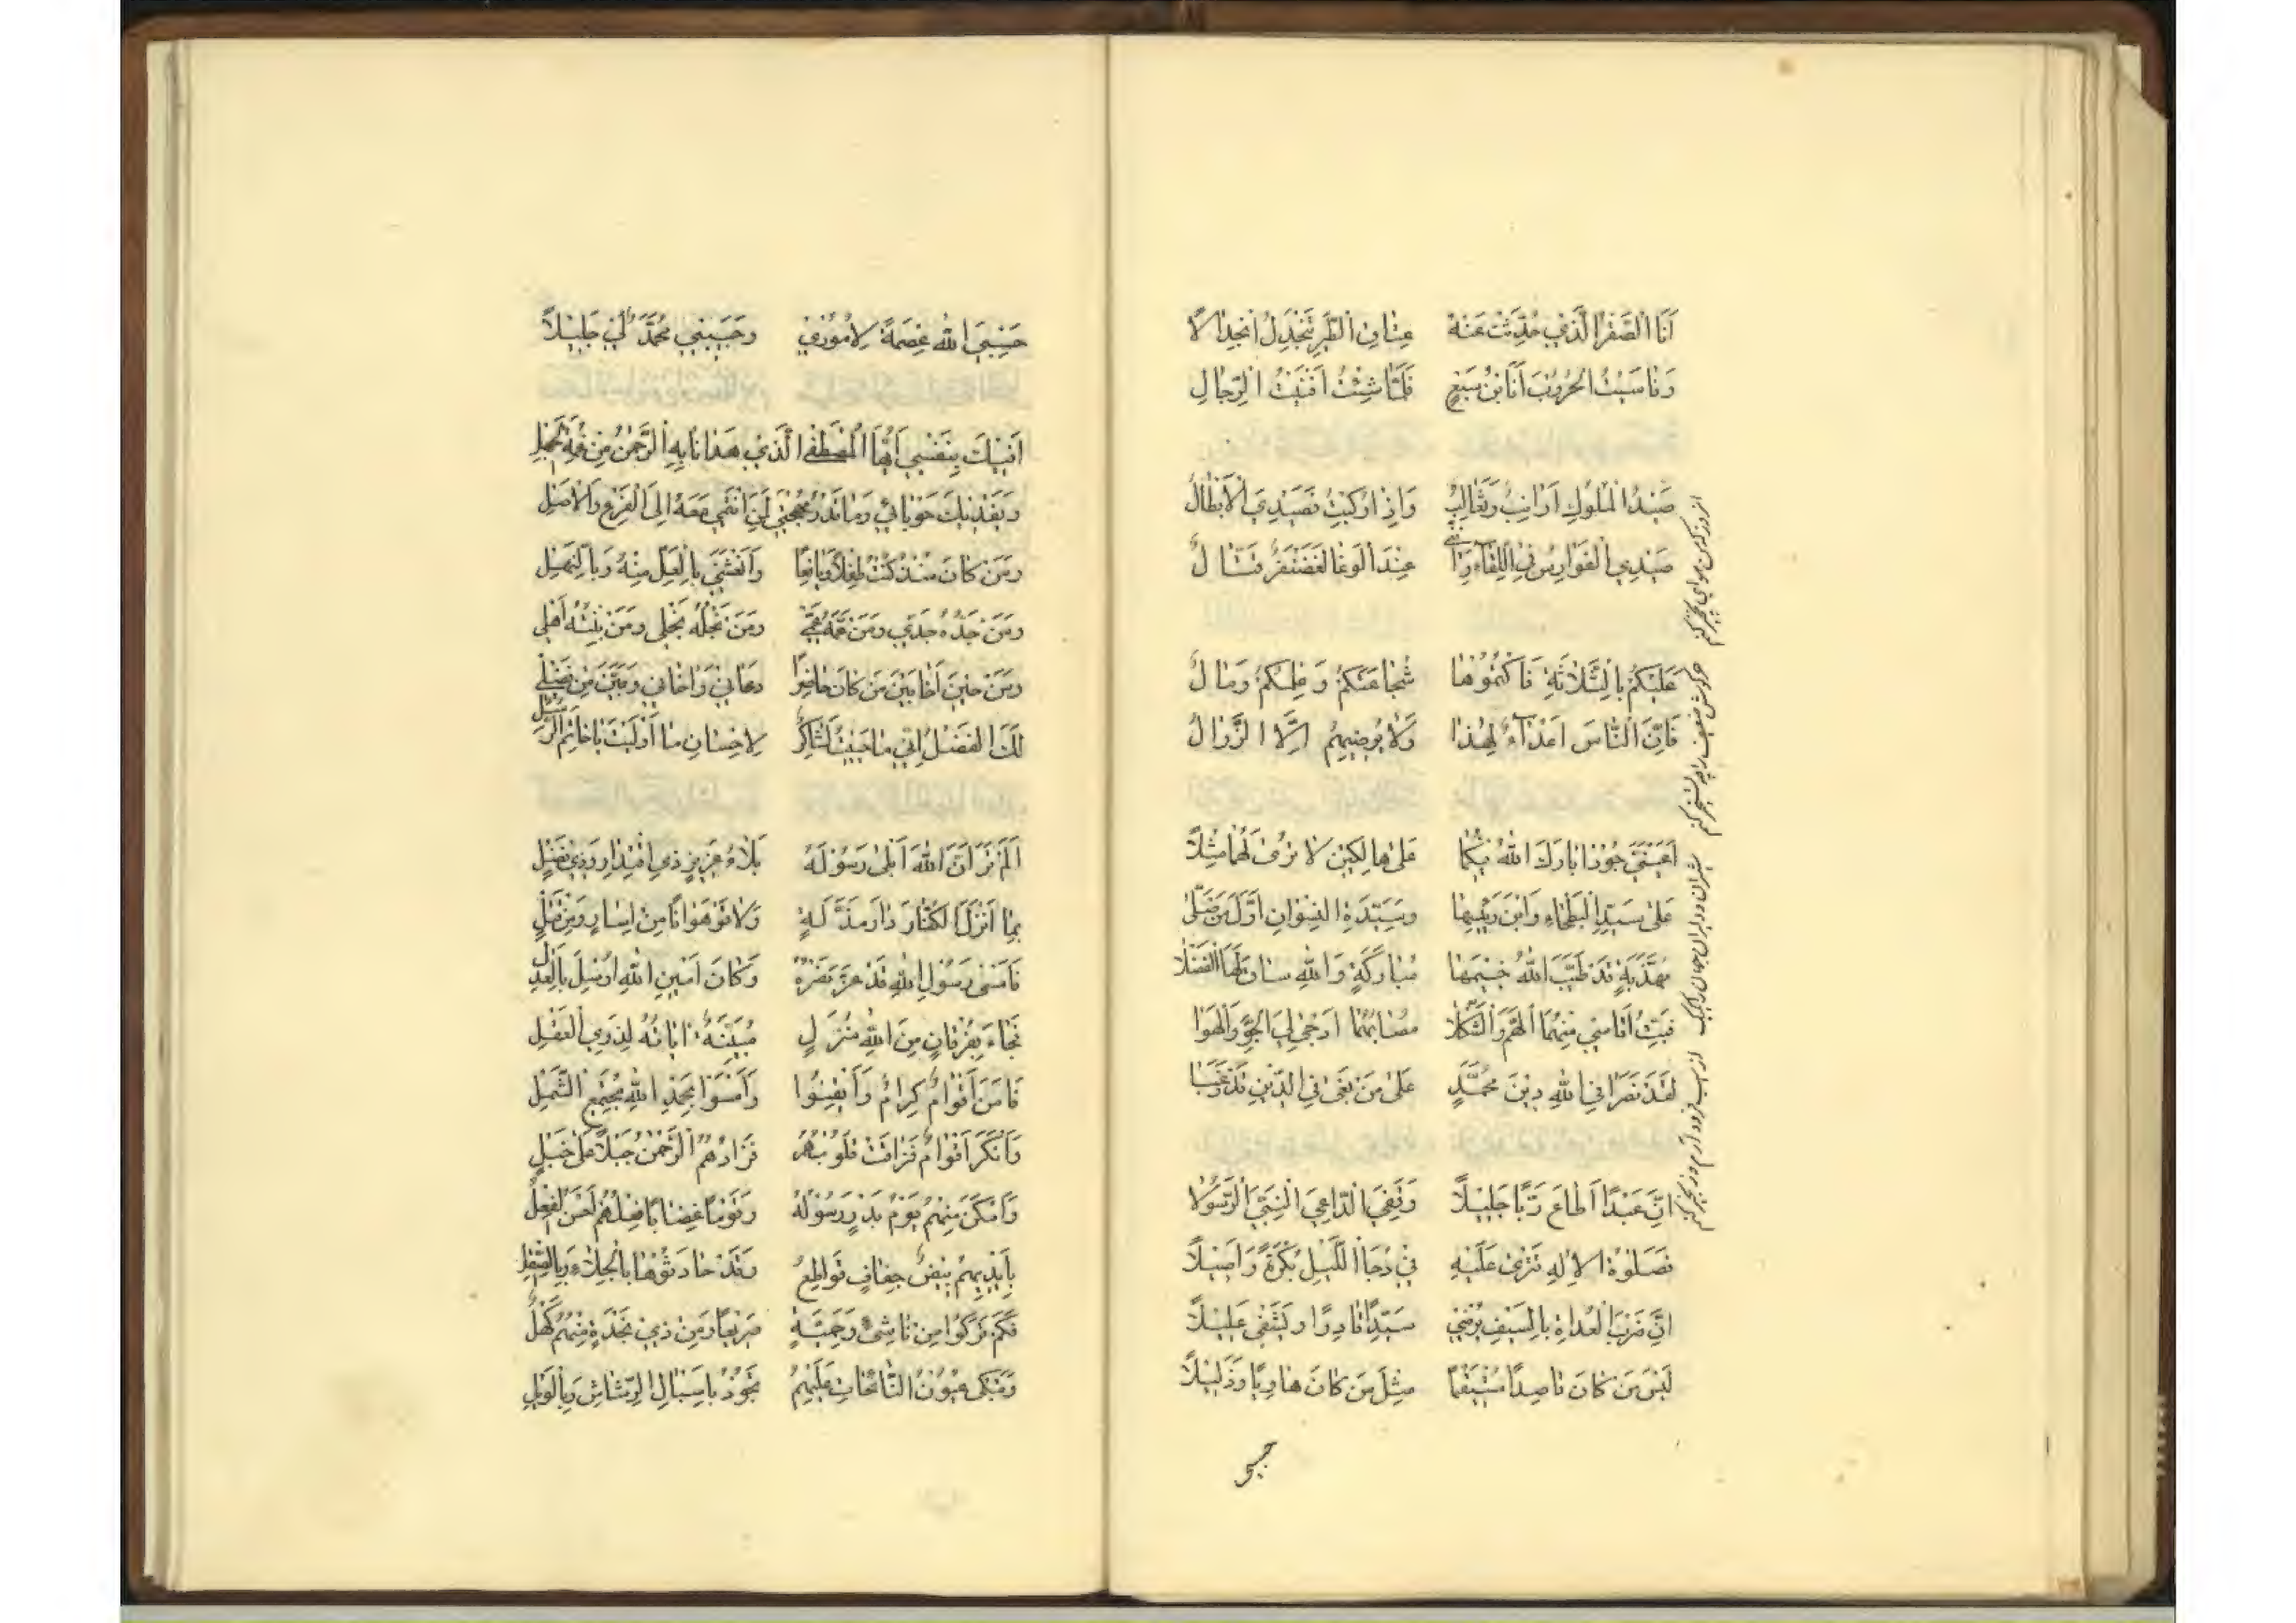 اَنَا الصَّقْرُ الَّذِي حُدِّثْتَ عَنْهُ عِتَاقُ الطَّيْرِ تَنْجَدِلُ انْجِدَالًا
وَقَاسَيْتُ الحُرُوبَ اَنَا ابْنُ سَبْعٍ فَلَمَّا شِبْتُ اَفْنَيْتُ الرِّجَالِ
صَيْدُ الْمُلُوكِ اَرَانِبُ وَثَعَالِبُ وَاِذَا رَكِبْتُ فَصَيْدِيَ الْاَبْطَالُ
صَيْدِي الْفَوَارِسُ فِي اللِّقَاءِ وَاِنَّنِي عِنْدَ الْوَغَا لَغَضَنْفَرٌ قَتَّالُ
عَلَيْكُمْ بِالثَّلَاثَةِ فَاكْتُمُوهَا شُجَاعَتَكُمْ وَعِلْمَكُمُ وَمَالُ
فَاِنَّ النَّاسَ اَعْدَآءٌ لِهٰذَا وَلَا يُرْضِيهِمُ اِلَّا الزَّوَالُ
اَعَيْنَيَّ جُودَا بَارَكَ اللهُ فِيكُمَا عَلٰى هَالِكَيْنِ لَا تَرٰى لَهُمَا مِثْلًا
عَلٰى سَيِّدِ الْبَطْحَاءِ وَابْنِ رَئِيسِهَا وَسَيِّدَةِ النِّسْوَانِ اَوَّلِ مَنْ صَلّٰى
مُهَذَّبَةٍ قَدْ طَيَّبَ اللهُ خِيْمَهَا مُبَارَكَةٍ وَاللهِ سَاقَ لَهَا الفَضْلَا
فَبِتُّ اُقَاسِي مِنْهُمَا الْهَمَّ وَالثَّكْلَا مُصَابُهُمَا اَدْجٰى لِيَ الْجَوَّ وَالْهَوَا
لَقَدْ نَصَرَا فِي اللهِ دِينَ مُحَمَّدٍ عَلٰى مَنْ بَغٰى فِي الدِّينِ قَدْ رَعَيَا
اِنَّ عَبْدًا اَطَاعَ رَبًّا جَلِيلًا وَقَفٰى الدَّاعِيَ النَّبِيَّ الرَّسُولَا
فَصَلٰوةُ الْاِلٰهِ تَتْرٰى عَلَيْهِ فِي دُجَا اللَّيْلِ بُكْرَةً وَاَصِيلًا
اِنَّ ضَرْبَ الْعُدَاةِ بِالسَّيْفِ يُرْضِي سَيِّدًا قَادِرًا وَيَشْفِي عَلِيلًا
لَيْسَ مَنْ كَانَ قَاصِدًا مُسْتَقِيمًا مِثْلَ مَنْ كَانَ هَاوِيًا وَذَلِيلًا
حسبی
حَسْبِيَ اللهُ عِصْمَةً لِاُمُورِي وَحَبِيبِي مُحَمَّدٌ لِي خَلِيلًا
اَفْدِيكَ بِنَفْسِي اَيُّهَا الْمُصْطَفَى الَّذِي هَدَانَا بِهِ الرَّحْمٰنُ مِنْ غُمَّةِ الْجَهْلِ
وَيَفْدِيكَ حَوْبَائِي وَمَا قَدْرُ مُهْجَتِي لِمَنْ اَنْتَمِي مَعَهُ اِلَى الْفَرْعِ وَالْاَصْلِ
وَمَنْ كَانَ مُنْذُ كُنْتُ طِفْلًا وَيَافِعًا وَاَنْعَشَنِي بِالْعَلِّ مِنْهُ وَبِالنَّهْلِ
وَمَنْ جَدُّهُ جَدِّي وَمَنْ عَمُّهُ عَمِّي وَمَنْ نَجْلُهُ نَجْلِي وَمَنْ بِنْتُهُ اَهْلِي
وَمَنْ حِينَ اٰخَا بَيْنَ مَنْ كَانَ حَاضِرًا دَعَانِي وَاٰخَانِي وَبَيَّنَ مِنْ فَضْلِي
لَكَ الْفَضْلُ اِنِّي مَا حَيِيتُ لَشَاكِرٌ لِاِحْسَانِ مَا اَوْلَيْتَ يَا خَاتِمَ الرُّسْلِ
اَلَمْ تَرَ اَنَّ اللهَ اَبْلٰى رَسُولَهُ بَلَاءَ عَزِيزٍ ذِي اقْتِدَارٍ وَذِي فَضْلٍ
بِمَا اَنْزَلَ الْكُفَّارَ دَارَ مَذَلَّةٍ وَلَاقَوْا هَوَانًا مِنْ اِسَارٍ وَمِنْ قَتْلٍ
فَاَمْسٰى رَسُولُ اللهِ قَدْ عَزَّ نَصْرُهُ وَكَانَ اَمِينَ اللهِ اُرْسِلَ بِالْعَدْلِ
فَجَاءَ بِفُرْقَانٍ مِنَ اللهِ مُنْزَلٍ مُبَيَّنَةٌ اٰيَاتُهُ لِذَوِي الْعَقْلِ
فَاٰمَنَ اَقْوَامٌ كِرَامٌ وَاَيْقَنُوا وَاَمْسَوْا بِحَمْدِ اللهِ مُجْتَمِعِي الشَّمْلِ
وَاَنْكَرَ اَقْوَامٌ فَزَاغَتْ قُلُوبُهُمْ فَزَادَهُمُ الرَّحْمٰنُ خَبْلًا عَلٰى خَبْلٍ
وَاَمْكَنَ مِنْهُمْ يَوْمَ بَدْرٍ رَسُولَهُ وَقَوْمًا غِضَابًا فِعْلُهُمْ اَحْسَنُ الْفِعْلِ
بِاَيْدِيهِمْ بِيضٌ خِفَافٌ قَوَاطِعُ وَقَدْ حَادَثُوهَا بِالْجِلَاءِ وَبِالصَّقْلِ
فَكَمْ تَرَكُوا مِنْ نَاشِئٍ ذِي حَمِيَّةٍ صَرِيعًا وَمِنْ ذِي نَجْدَةٍ مِنْهُمُ كَهْلُ
وَتَبْكِي عُيُونُ النَّائِحَاتِ عَلَيْهِمُ تَجُودُ بِاِسْبَالِ الرَّشَاشِ وَبِالْوَبْلِ